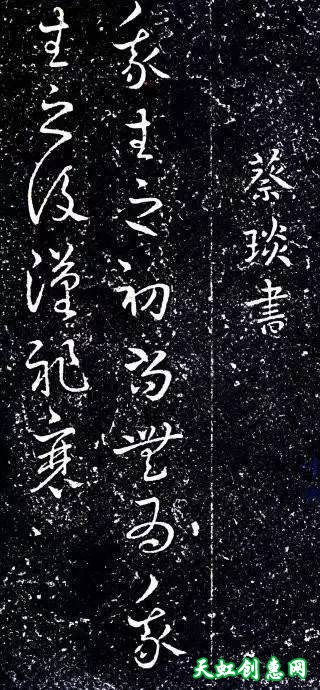 蔡琰書
我生之初尚無為我
生之後漢祚衰
天虹创惠网